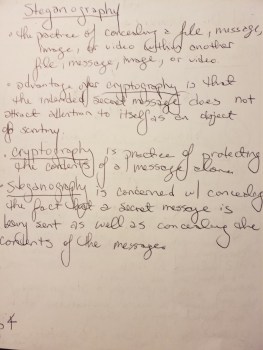 Steganography
• the practice of concealing a file, message,
image, or video within another
file, message, image, or video.
• advantage over cryptography is that
the intended secret message does not
attract attention to itself as an object
of scrutiny.
• cryptography is practice of protecting
the contents of a message alone.
• Steganography is concerned w/ concealing
the fact that a secret message is
being sent as well as concealing the
contents of the message.
4